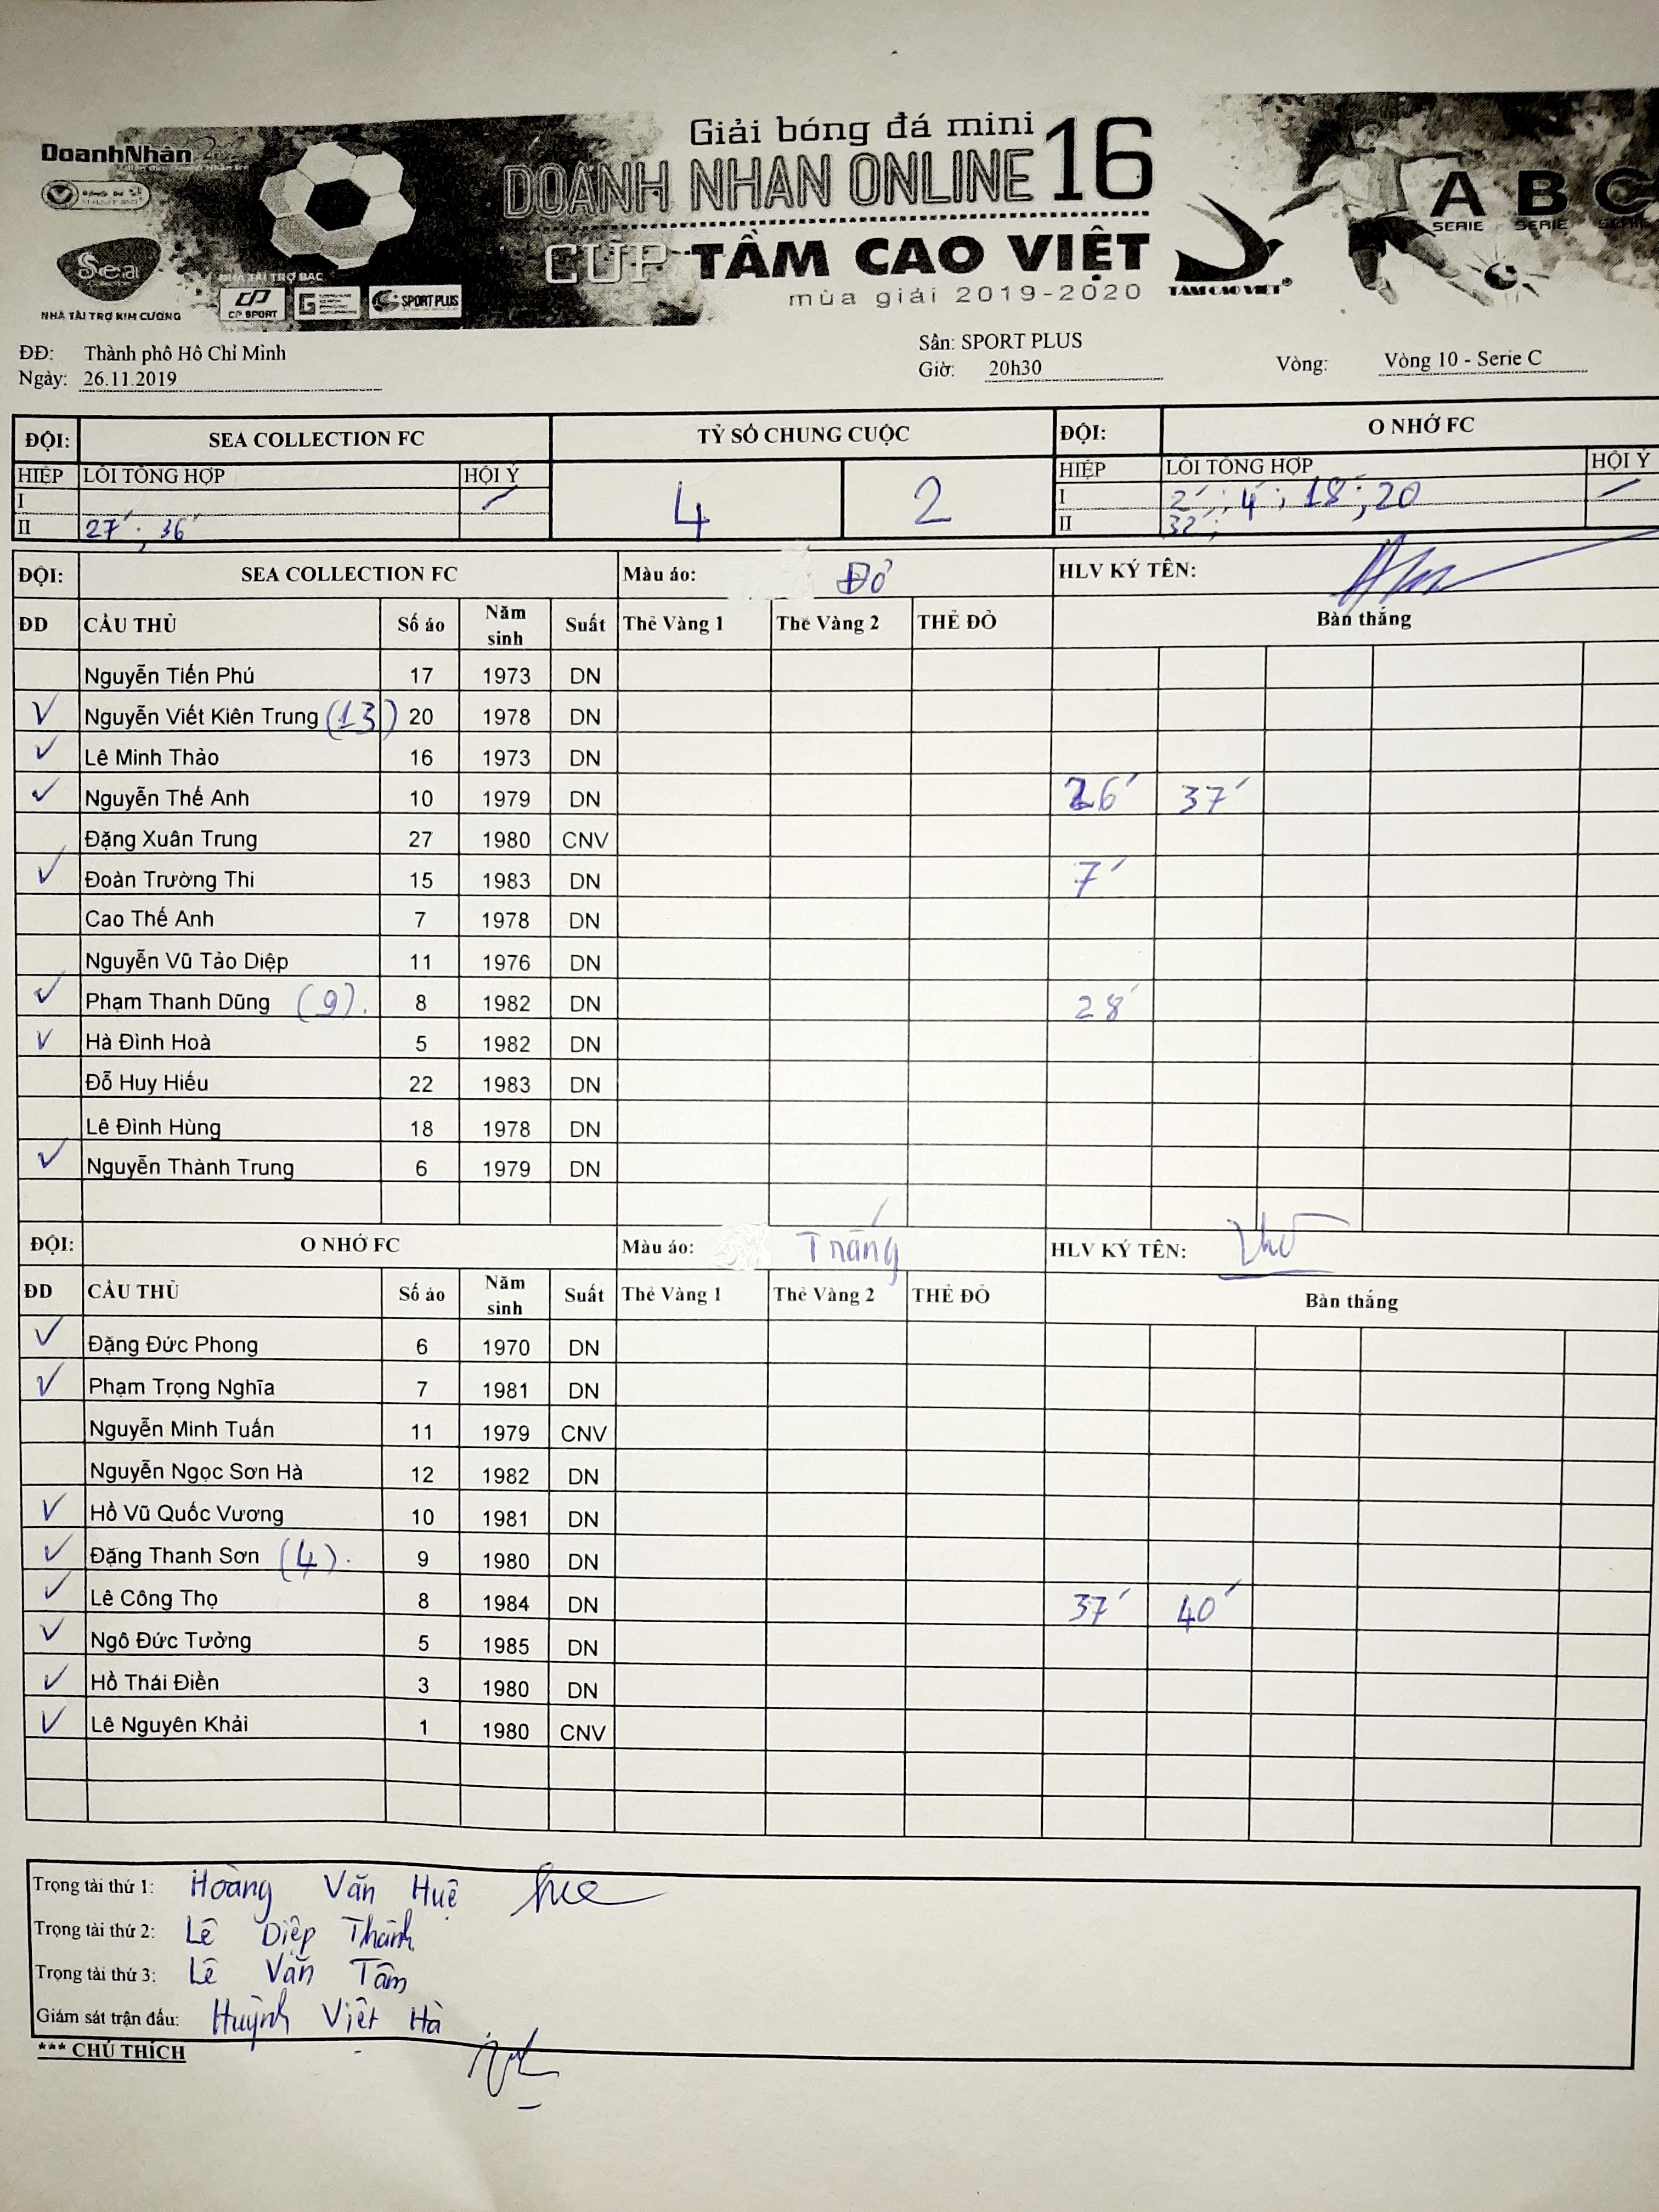 DoanhNhân
Giải bóng đá mini
DOANH NHÂN ONLINE 16
CÚP TẦM CAO VIỆT
mùa giải 2019-2020
Sea
NHÀ TÀI TRỢ KIM CƯƠNG
NHÀ TÀI TRỢ BẠC
CP SPORT
SPORT PLUS
TẦM CAO VIỆT®
A B C
SERIE SERIE SERIE
ĐĐ: Thành phố Hồ Chí Minh
Sân: SPORT PLUS
Ngày: 26.11.2019
Giờ: 20h30
Vòng: Vòng 10 - Serie C
ĐỘI: SEA COLLECTION FC TỶ SỐ CHUNG CUỘC ĐỘI: O NHỚ FC
HIỆP LỖI TỔNG HỢP HỘI Ý 4 2 HIỆP LỖI TỔNG HỢP HỘI Ý
I I 2'; 4'; 18'; 20
II 27'; 36' II 32';
ĐỘI: SEA COLLECTION FC Màu áo: Đỏ HLV KÝ TÊN:
ĐD CẦU THỦ Số áo Năm sinh Suất Thẻ Vàng 1 Thẻ Vàng 2 THẺ ĐỎ Bàn thắng
Nguyễn Tiến Phú 17 1973 DN
✓ Nguyễn Viết Kiên Trung (13) 20 1978 DN
✓ Lê Minh Thảo 16 1973 DN
✓ Nguyễn Thế Anh 10 1979 DN 26' 37'
Đặng Xuân Trung 27 1980 CNV
✓ Đoàn Trường Thi 15 1983 DN 7'
Cao Thế Anh 7 1978 DN
Nguyễn Vũ Tảo Diệp 11 1976 DN
✓ Phạm Thanh Dũng (9). 8 1982 DN 28'
✓ Hà Đình Hoà 5 1982 DN
Đỗ Huy Hiếu 22 1983 DN
Lê Đình Hùng 18 1978 DN
✓ Nguyễn Thành Trung 6 1979 DN
ĐỘI: O NHỚ FC Màu áo: Trắng HLV KÝ TÊN:
ĐD CẦU THỦ Số áo Năm sinh Suất Thẻ Vàng 1 Thẻ Vàng 2 THẺ ĐỎ Bàn thắng
✓ Đặng Đức Phong 6 1970 DN
✓ Phạm Trọng Nghĩa 7 1981 DN
Nguyễn Minh Tuấn 11 1979 CNV
Nguyễn Ngọc Sơn Hà 12 1982 DN
✓ Hồ Vũ Quốc Vương 10 1981 DN
✓ Đặng Thanh Sơn (4). 9 1980 DN
✓ Lê Công Thọ 8 1984 DN 37' 40'
✓ Ngô Đức Tưởng 5 1985 DN
✓ Hồ Thái Điền 3 1980 DN
✓ Lê Nguyên Khải 1 1980 CNV
Trọng tài thứ 1: Hoàng Văn Huệ
Trọng tài thứ 2: Lê Diệp Thành
Trọng tài thứ 3: Lê Văn Tâm
Giám sát trận đấu: Huỳnh Việt Hà
*** CHÚ THÍCH